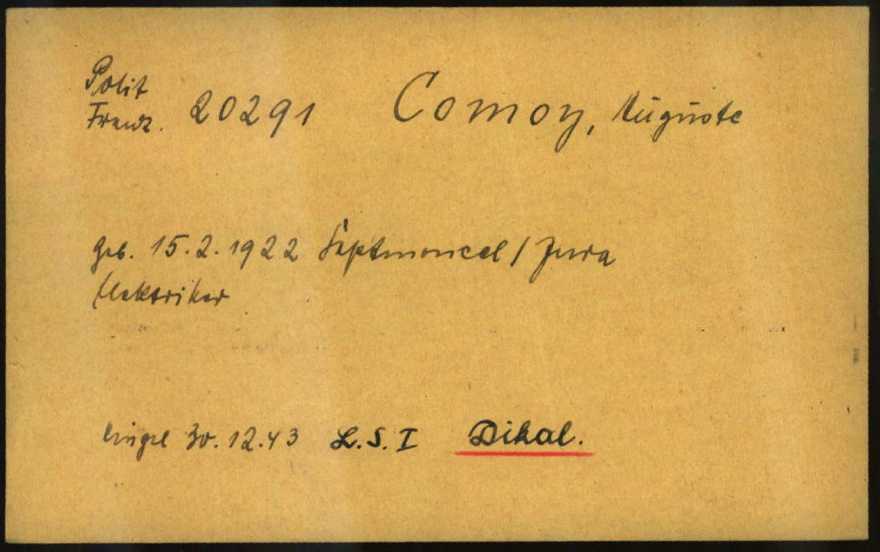 Polit
Franz. 20291 Comoy, Auguste
geb. 15.2.1922 Septmoncel / Jura
Elektriker
eingel 30.12.43 L.S. I Dikal.